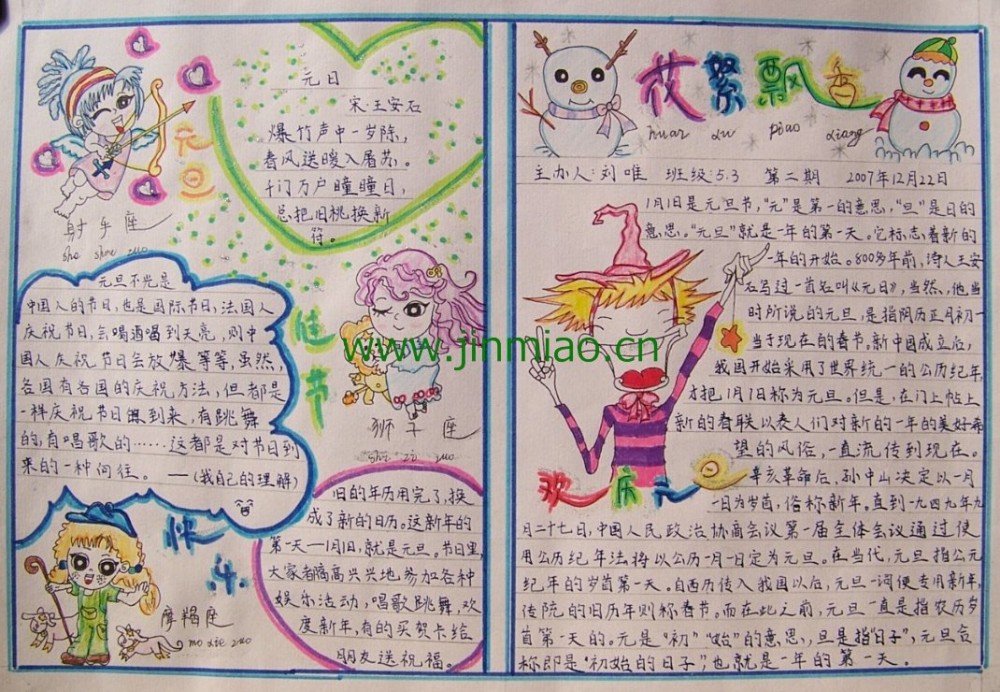 元日
宋、王安石
爆竹声中一岁除,
春风送暖入屠苏。
千门万户瞳瞳日,
总把旧桃换新
符。
元旦
佳节
快
射手座
she shou zuo
元旦不光是
中国人的节日,也是国际节日,法国人
庆祝节日,会喝酒唱到天亮,则中
国人庆祝节日会放爆等等,虽然,
各国有各国的庆祝方法,但都是
一样庆祝节日
到来,有跳舞
的,有唱歌的……这都是对节日到
来的一种向往。 ——(我自己的理解)
狮子座
shi zi zuo
摩羯座
mo jie zuo
旧的年历用完了,换
成了新的日历。这新年的
第一天—1月1日,就是元旦。节日里,
大家都高高兴兴地参加各种
娱乐活动,唱歌跳舞,欢
度新年,有的买贺卡给
朋友送祝福。
花絮飘香
huar xu piao xiang
主办人:刘唯 班级:5.3 第二期 2007年12月22日
1月1日是元旦节,“元”是第一的意思,“旦”是日的
意思。“元旦”就是一年的第一天。它标志着新的
一年的开始。800多年前,诗人王安
石写过一首名叫《元日》,当然,他当
时所说的元旦,是指阴历正月初一
当于现在的春节。新中国成立后,
我国开始采用了世界统一的公历纪年,
才把1月1日称为元旦。但是,在门上帖上
新的春联以表人们对新的一年的美好希
望的风俗,一直流传到现在。
辛亥革命后,孙中山决定以一月
一日为岁首,俗称新年。直到一九四九年九
月二十七日,中国人民政治协商会议第一届全体会议通过使
用公历纪年法,将以公历一月一日定为元旦。在当代,元旦指公元
纪年的岁首第一天。自西历传入我国以后,元旦一词便专用新年,
传统的旧历年则称春节。而在此之前,元旦一直是指农历岁
首第一天的。元是“初”“始”的意思,旦是指“日子”,元旦合
称即是“初始的日子”,也就是一年的第一天。
欢庆元
www.jinmiao.cn